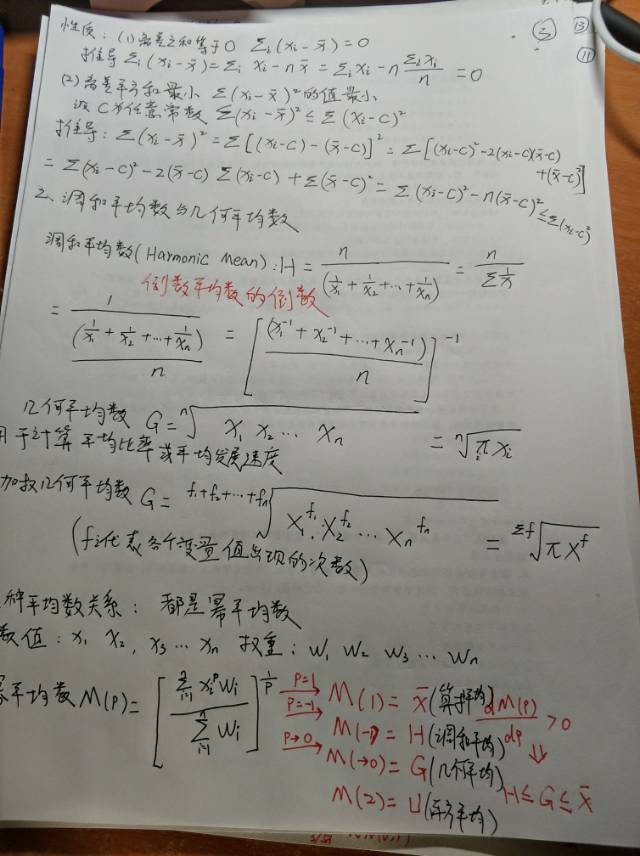 ③ ⑬
⑪
性质: (1) 离差之和等于0 Σᵢ(xᵢ-x̄)=0
推导 Σᵢ(xᵢ-x̄)=Σᵢ xᵢ-n x̄ = Σᵢxᵢ-n Σᵢxᵢ/n = 0
(2) 离差平方和最小 Σ(xᵢ-x̄)²的值最小
设C为任意常数 Σ(xᵢ-x̄)² ≤ Σ(xᵢ-C)²
推导: Σ(xᵢ-x̄)² = Σ[(xᵢ-C)-(x̄-C)]² = Σ[(xᵢ-C)²-2(xᵢ-C)(x̄-C)+(x̄-C)²]
= Σ(xᵢ-C)²-2(x̄-C) Σ(xᵢ-C)+Σ(x̄-C)² = Σ(xᵢ-C)²-n(x̄-C)² ≤ Σ(xᵢ-C)²
2、调和平均数与几何平均数
调和平均数(Harmonic Mean): H = n/(1/x₁+1/x₂+…+1/xₙ) = n/Σ(1/x)
倒数平均数的倒数
= 1/((1/x₁+1/x₂+…+1/xₙ)/n) = [(x₁⁻¹+x₂⁻¹+…+xₙ⁻¹)/n]⁻¹
几何平均数 G = ⁿ√(x₁ x₂ … xₙ) = ⁿ√(πᵢ xᵢ)
用于计算平均比率或平均发展速度
加权几何平均数 G = ^(f₁+f₂+…+fₙ)√(x₁^f₁·x₂^f₂ … xₙ^fₙ) = ^(Σf)√(πx^f)
(fᵢ代表各个变量值出现的次数)
种平均数关系: 都是幂平均数
数值: x₁ x₂, x₃ … xₙ 权重: w₁ w₂ w₃ … wₙ
幂平均数 M(p) = [Σᵢ₌₁ⁿ xᵢᵖwᵢ / Σᵢ₌₁ⁿ wᵢ]^(1/p) P=1→ M(1) = x̄ (算术平均) dM(p)/dp > 0
P=-1→ M(-1) = H (调和平均) ⇓
p→0→ M(→0) = G (几何平均) H≤G≤x̄
M(2) = U (平方平均)